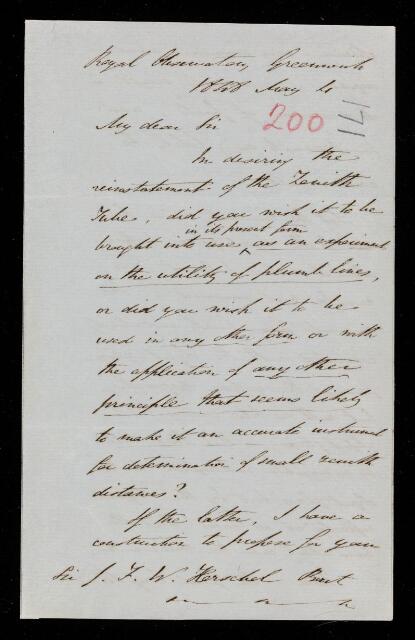 Royal Observatory Greenwich
1848 May 4
200
141
My dear Sir
In desiring the
reinstatement of the Zenith
Tube, did you wish it to be
in its present form
brought into use, as an experiment
on the utility of plumb lines,
or did you wish it to be
used in any other form or with
the application of any other
principle that seems likely
to make it an accurate instrument
for determination of small zenith
distances?
If the latter, I have a
construction to propose for your
Sir J. F. W. Herschel Bart